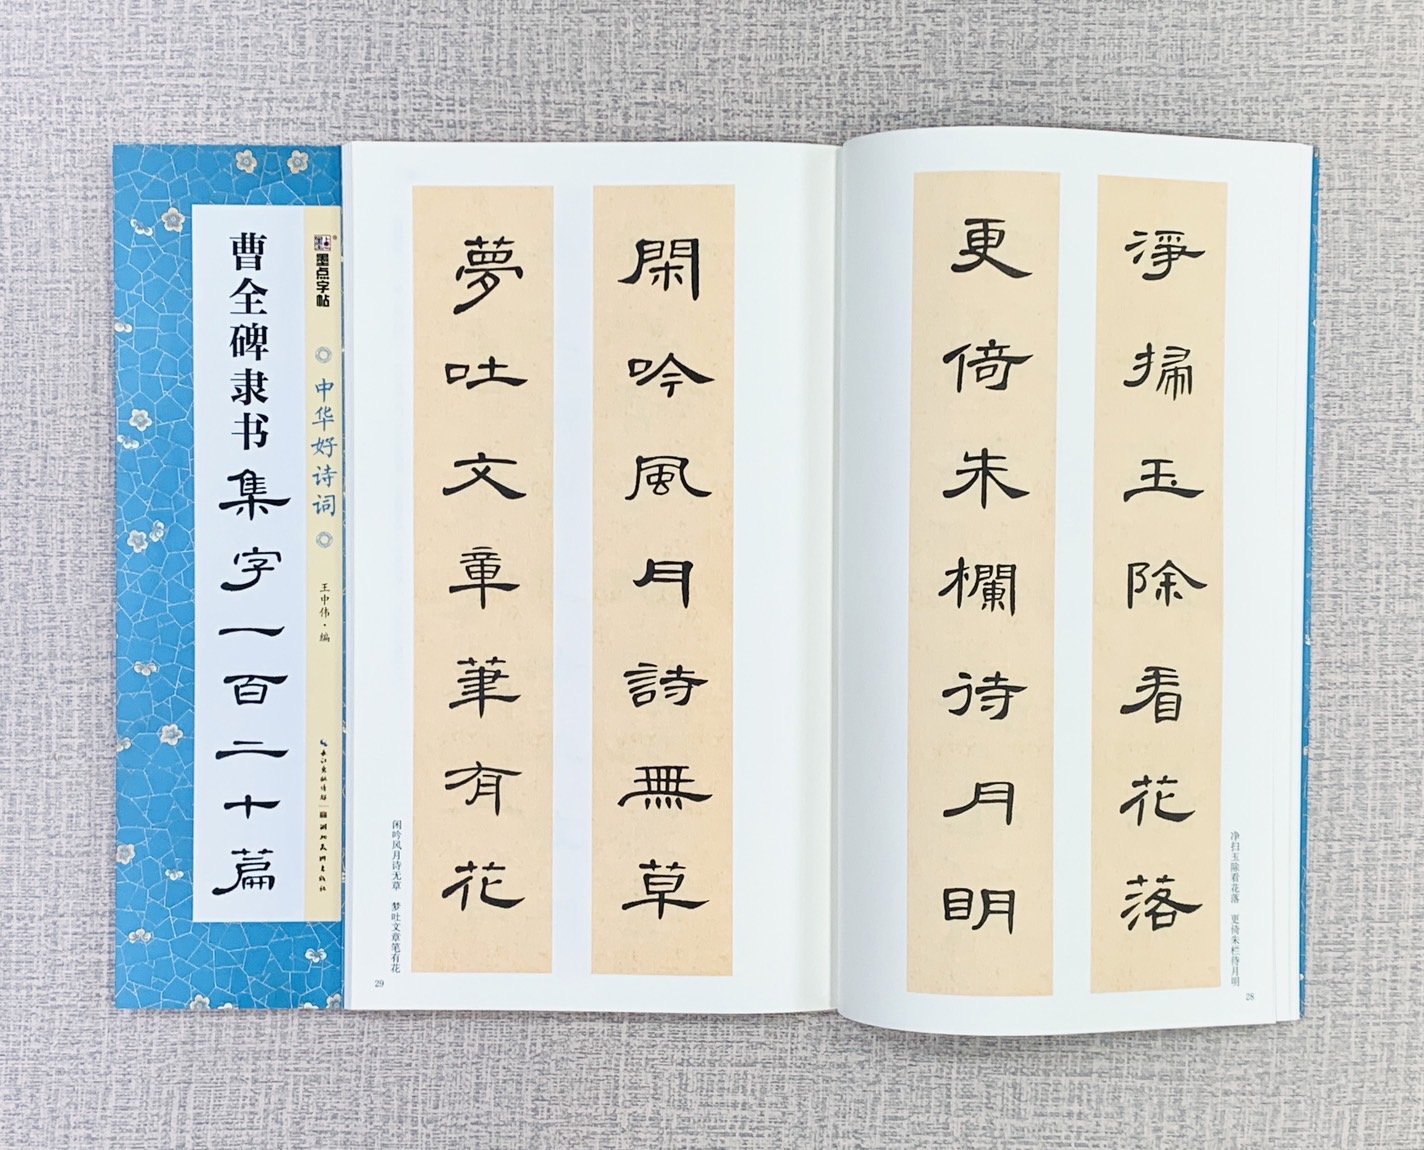 淨掃玉除看花落
更倚朱欄待月明
净扫玉除看花落　更倚朱栏待月明
28
閑吟風月詩無草
夢吐文章筆有花
闲吟风月诗无草　梦吐文章笔有花
29
墨点字帖
中华好诗词
王中伟·编
长江出版传媒 湖北美术出版社
曹全碑隶书集字一百二十篇